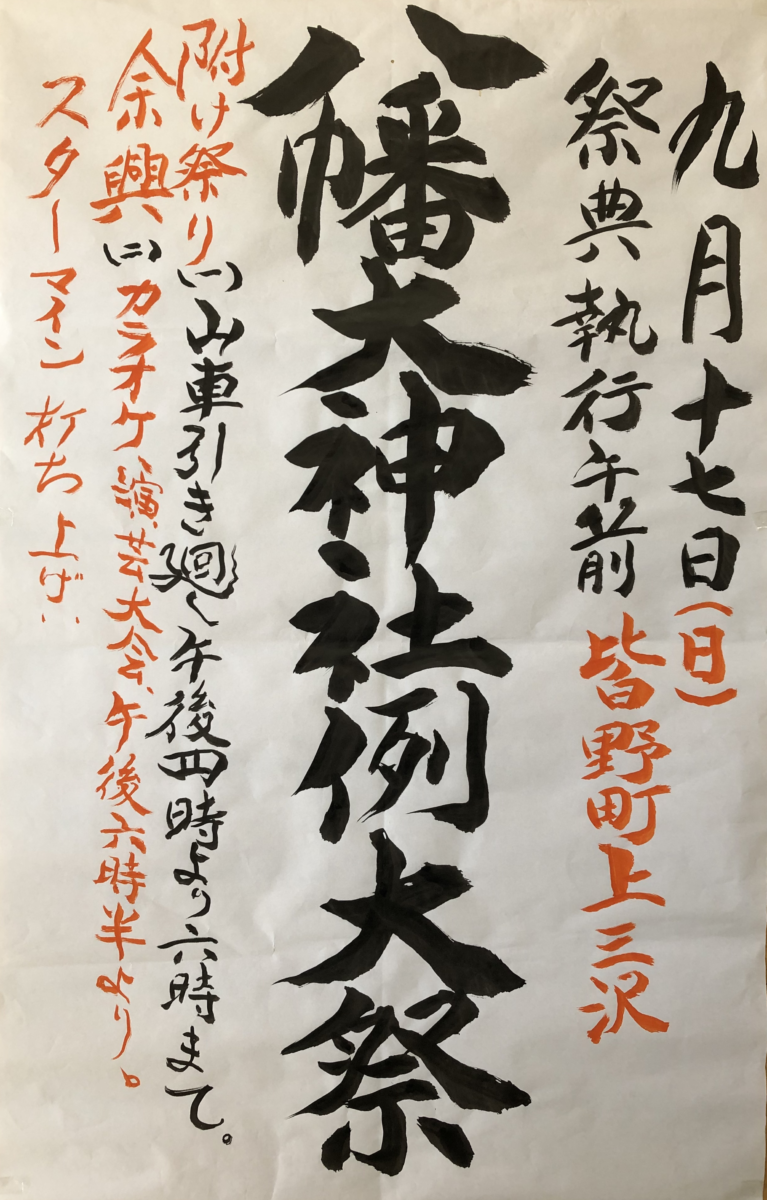 九月十七日(日)
祭典執行午前 皆野町上三沢
八幡大神社例大祭
附け祭り(一)山車引き廻し午後四時より六時まで。
余興(二)カラオケ演芸大会、午後六時半より。
スターマイン打ち上げ